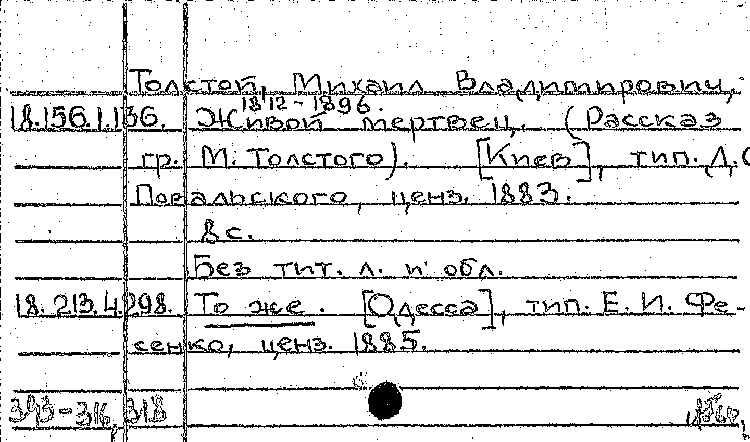 Толстой, Михаил Владимирович,
1812-1896.
18.156.1.136. Живой мертвец. (Рассказ
гр. М. Толстого). [Киев], тип. Д. С
Повальского, ценз. 1883.
8 с.
Без тит. л. и обл.
18.213.4.298. То же. [Одесса], тип. Е. И. Фе-
сенко, ценз. 1885.
318